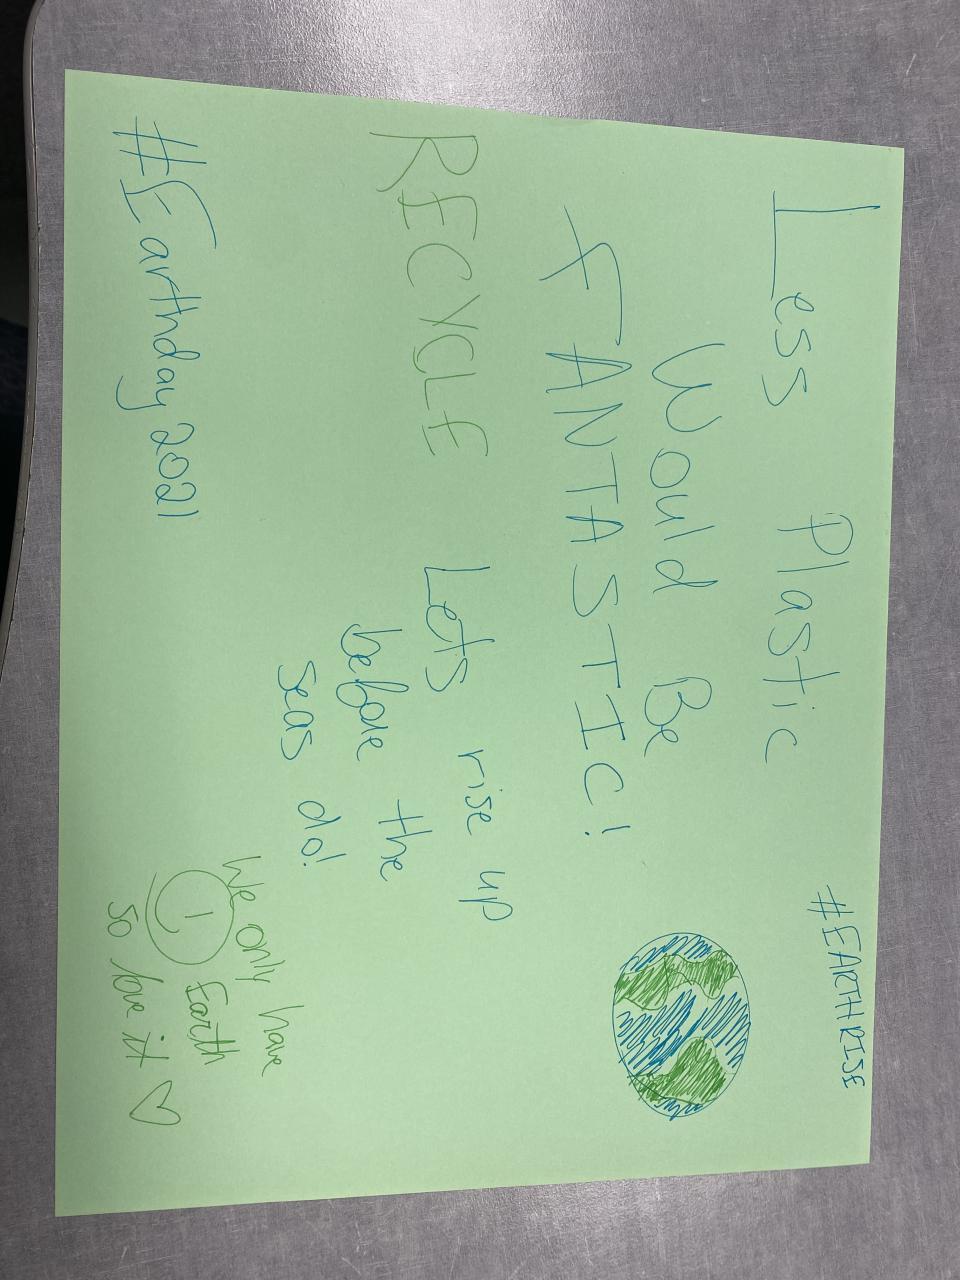 Less Plastic
#EARTHRISE
Would Be
FANTASTIC!
RECYCLE
Lets rise up
before the
seas do!
#Earthday 2021
We only have
1 Earth
so love it